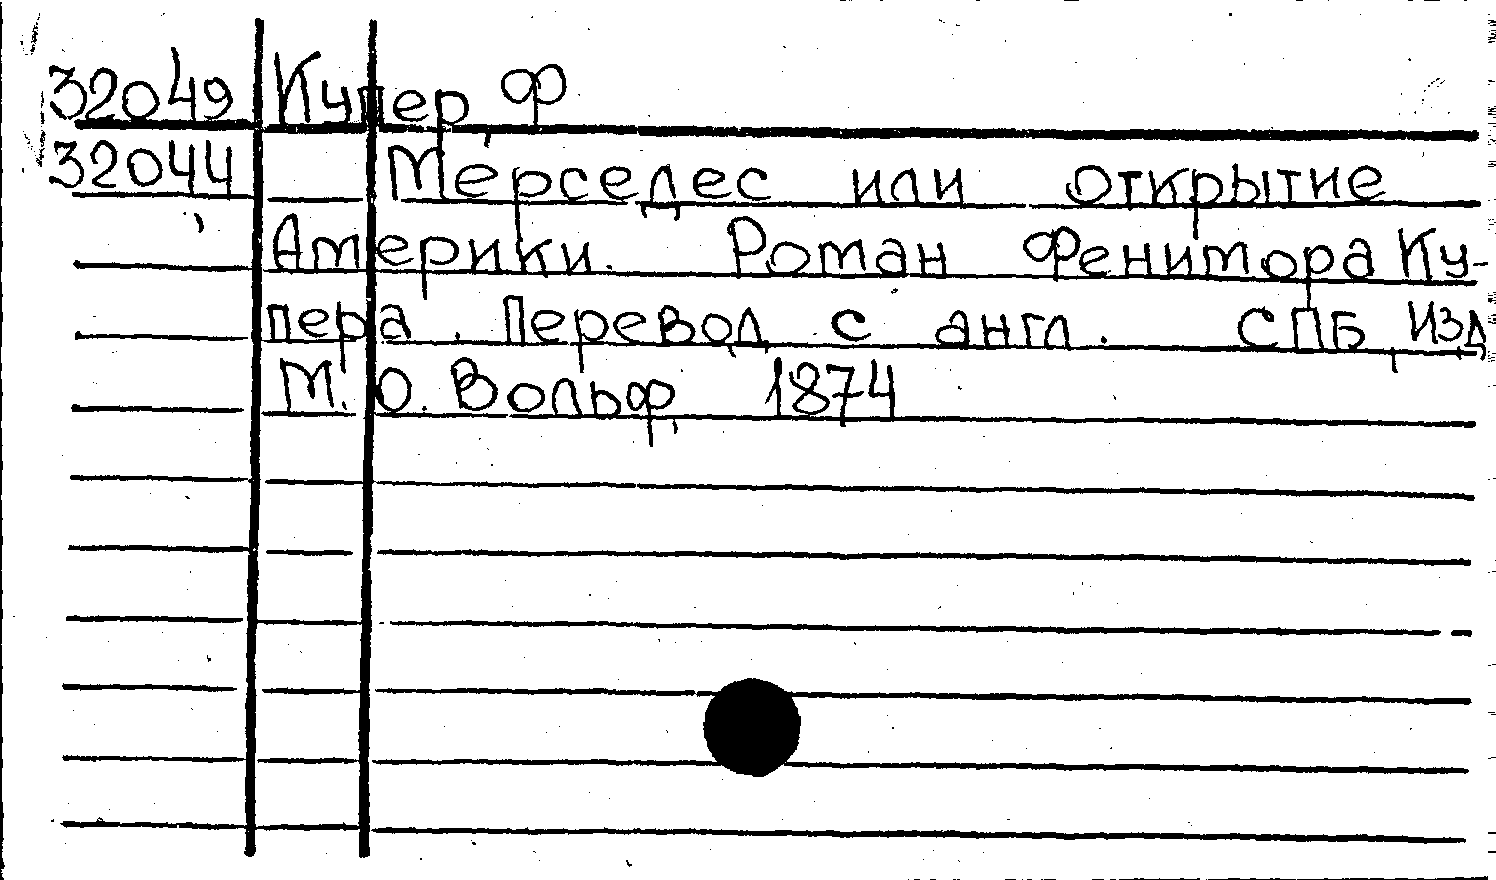 32049 Купер, Ф
32044 Мерседес или открытие
Америки. Роман Фенимора Ку-
пера. Перевод с англ. СПБ, Изд
М. О. Вольф, 1874